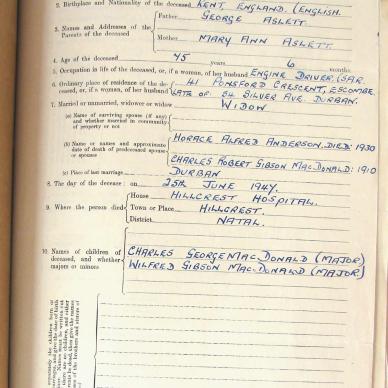 2. Birthplace and Nationality of the deceased KENT, ENGLAND. (ENGLISH.
3. Names and Addresses of the Parents of the deceased
Father GEORGE ASLETT.
Mother MARY ANN ASLETT.
4. Age of the deceased 45 years 6 months
5. Occupation in life of the deceased, or, if a woman, of her husband ENGINE DRIVER. (SAR.
6. Ordinary place of residence of the deceased, or, if a woman, of her husband
41 PONSFORD CRESCENT, ESCOMBE.
LATE OF. 54 SILVER AVE. DURBAN.
7. Married or unmarried, widower or widow WIDOW
(a) Name of surviving spouse (if any) and whether married in community of property or not
(b) Name or names and approximate date of death of predeceased spouse or spouses
HORACE ALFRED ANDERSON. DIED. 1930
CHARLES ROBERT GIBSON MACDONALD: 1910
(c) Place of last marriage DURBAN
8. The day of the decease : on 25th JUNE 1947.
9. Where the person died
House HILLCREST HOSPITAL.
Town or Place HILLCREST.
District NATAL.
10. Names of children of deceased, and whether majors or minors
CHARLES GEORGE MACDONALD (MAJOR)
WILFRED GIBSON MACDONALD (MAJOR)